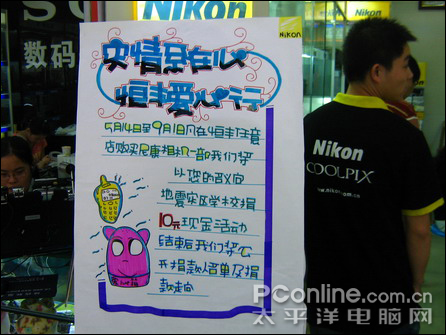 Nikon
数码
Nikon
情系在心
恒丰爱心行
5月14日至9月1日凡在恒丰任意
店购买尼康相机一部我们将
以您的名义向
地震灾区学校捐
10元现金活动
结束后我们将公
开捐款人名单及捐
款走向
Nikon
COOLPIX
PConline.com.cn
太平洋电脑网